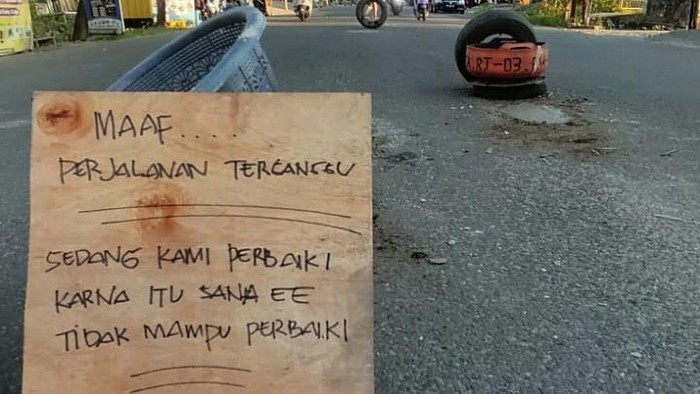 MAAF....
PERJALANAN TERGANGGU
SEDANG KAMI PERBAIKI
KARNA ITU SANA EE
TIDAK MAMPU PERBAIKI
RT-03.